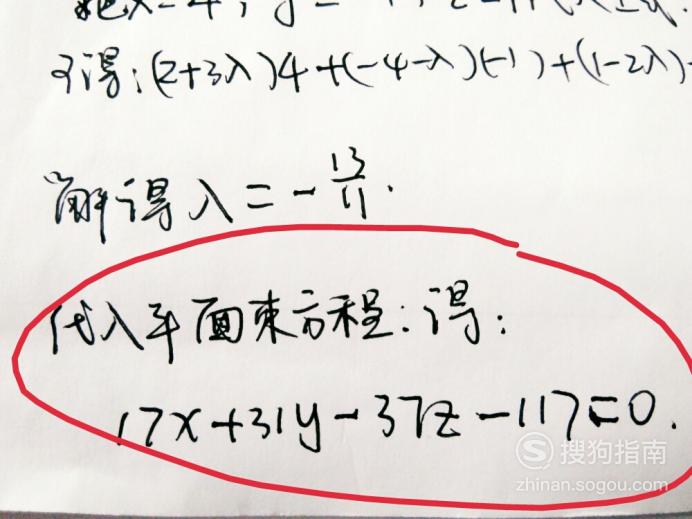 可得:(2+3λ)4+(-4-λ)(-1)+(1-2λ)
解得λ=-13/11.
代入平面束方程:得:
17x+31y-37z-117=0.
搜狗指南
zhinan.sogou.com